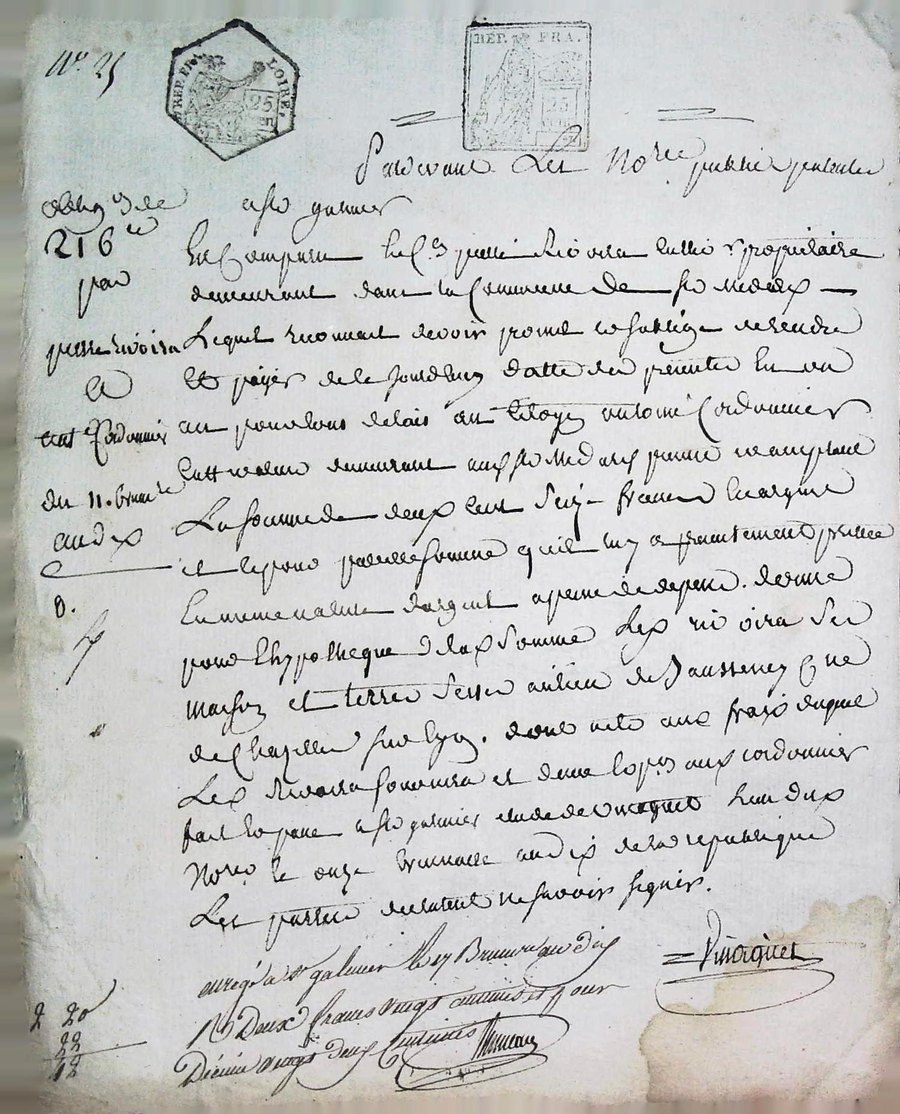 No. 25
REP. FRA. LOIRE.
25
REP. FRA.
25
Pardevant Les Nores publics patentés
a st galmier
oblign de
216
par
pierre rivoira
A
ant Cordonnier
du 11. brumre
an dix
En Comparu le Cn pierre Rivoira cultivr propriétaire
demeurant dans la Commune de st medard
Lequel reconnait devoir promet et soblige de rendre
et payer de ce jourdhuy datte des présentes en un
an pour tous delais au Citoyen antoine Cordonnier
demeurant aux st Medard présent et acceptant
La somme de deux cent seize francs En argent
et ce pour pareille somme qu'il luy a présentement prettée
En meme nature d'argent a peine de depens. donne
pour l'hypotheque de la somme Led rivoira ses
maison et terres sises au lieu de Cne
de Chazelles sur lyon. dont acte aux frais duquel
Led Rivoira et deux copies aux cordonnier
fait et passé a st galmier étude de vinagnet l'un des
Nores le onze brumaire an dix de la republique
Les parties declarent ne savoir signer.
Vinagnet
enregé a st galmier le 17 Brumre an dix
R Deux francs vingt centimes et pour
Décime vingt deux centimes
2 20
22
42